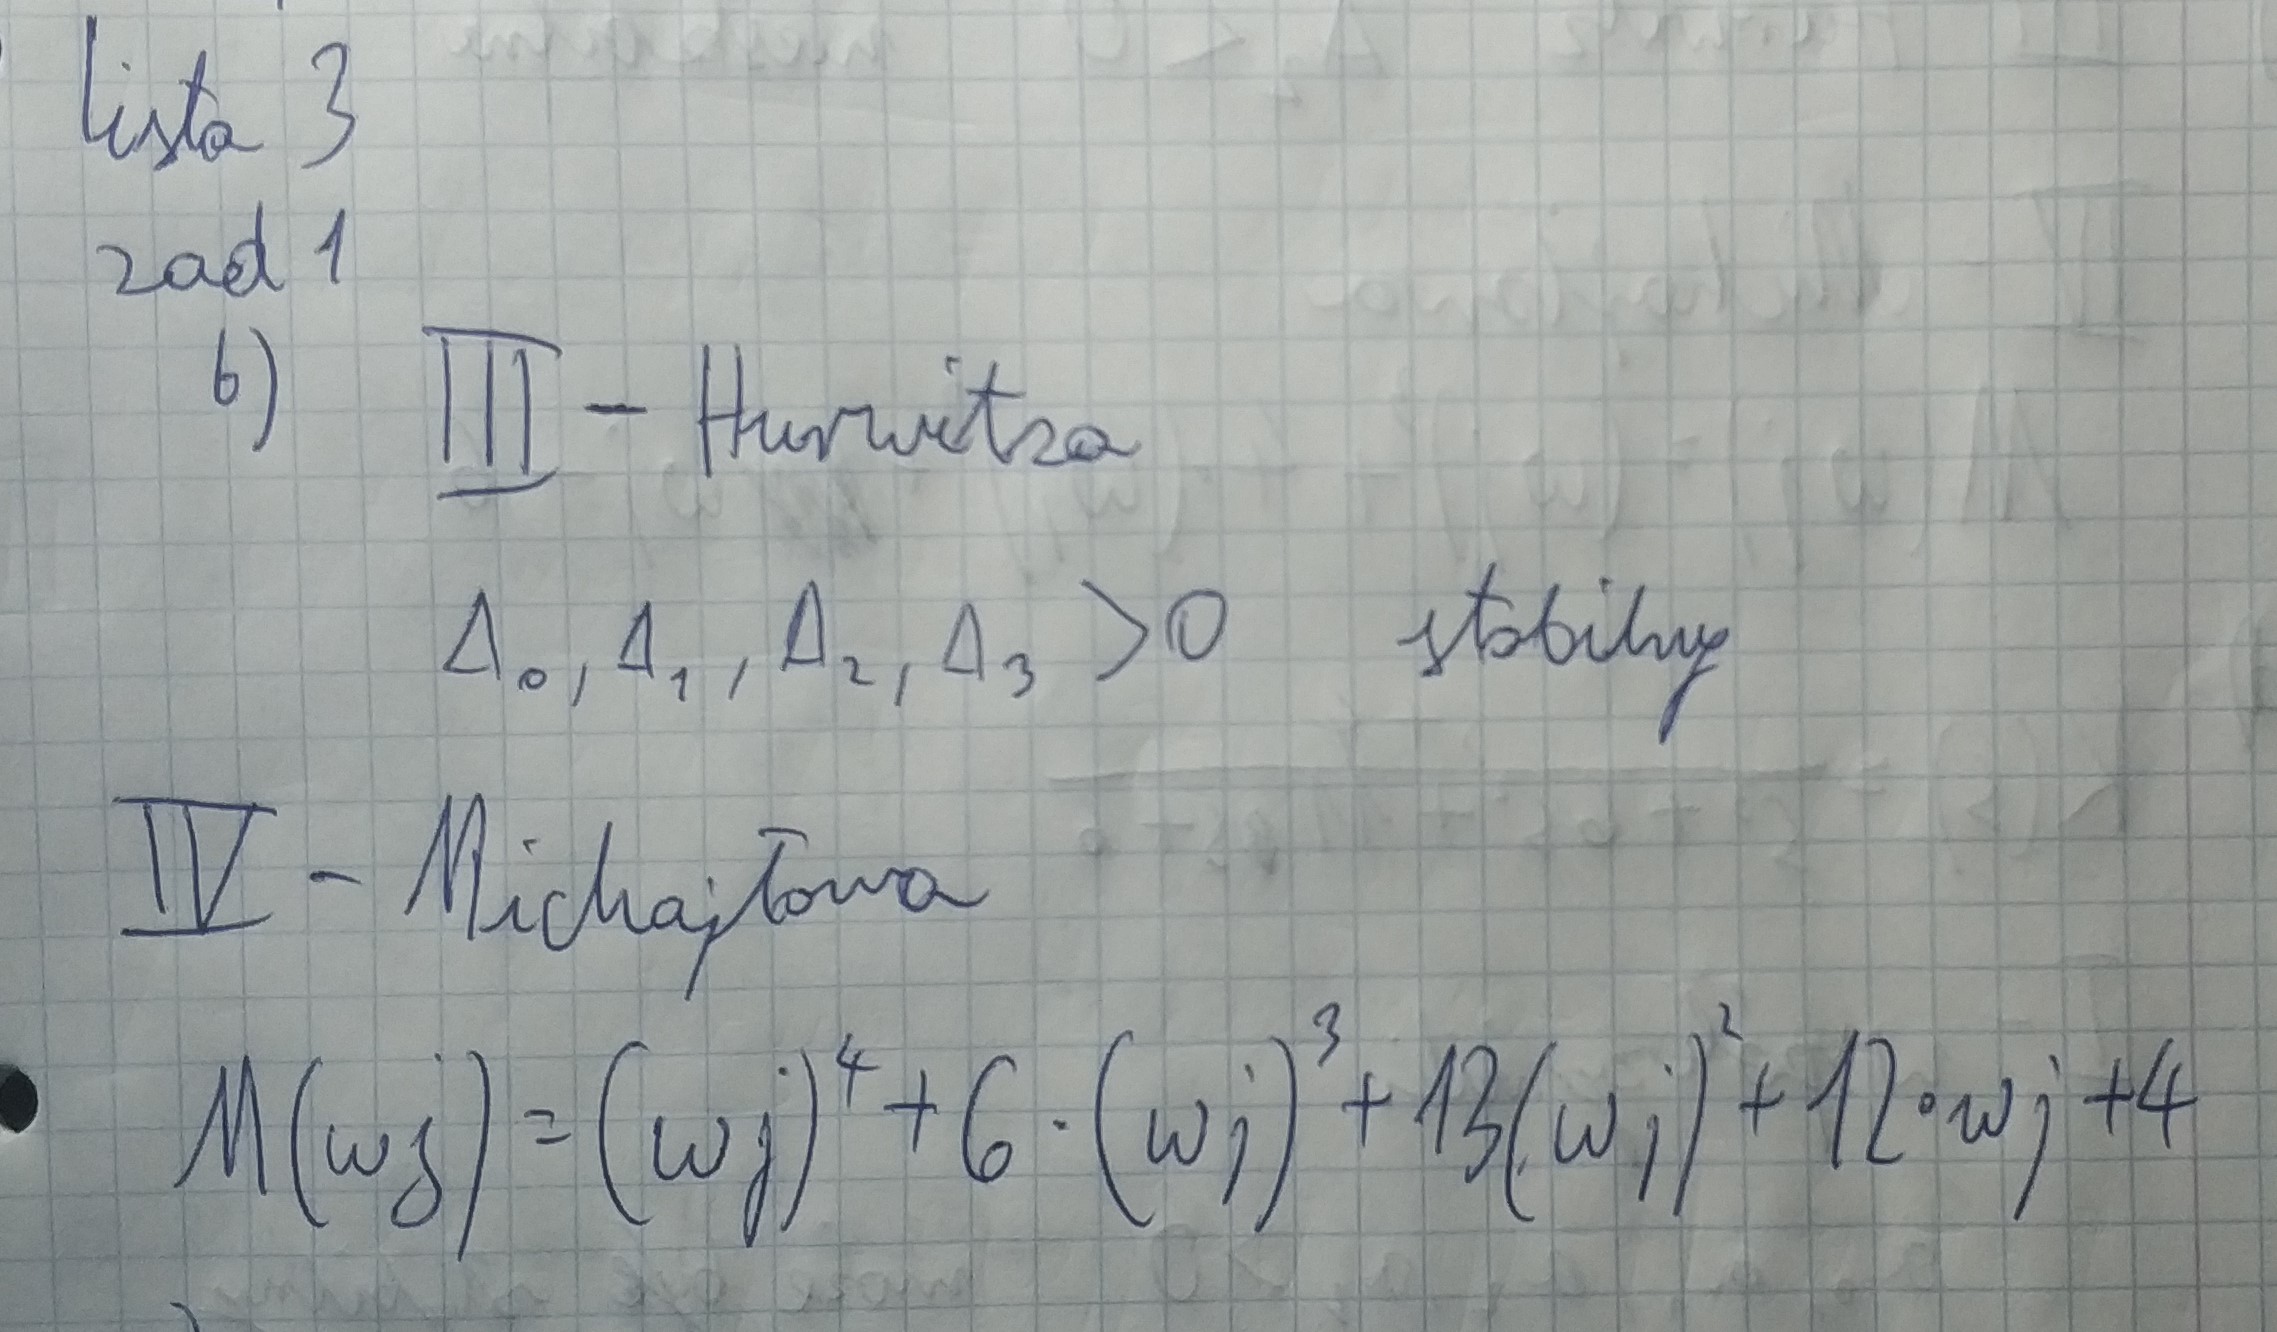 lista 3
zad 1
b) III - Hurwitza
Δ₀, Δ₁, Δ₂, Δ₃ >0 stabilny
IV - Michajłowa
M(wj) = (wj)⁴ + 6 · (wj)³ + 13(wj)² + 12 · wj + 4